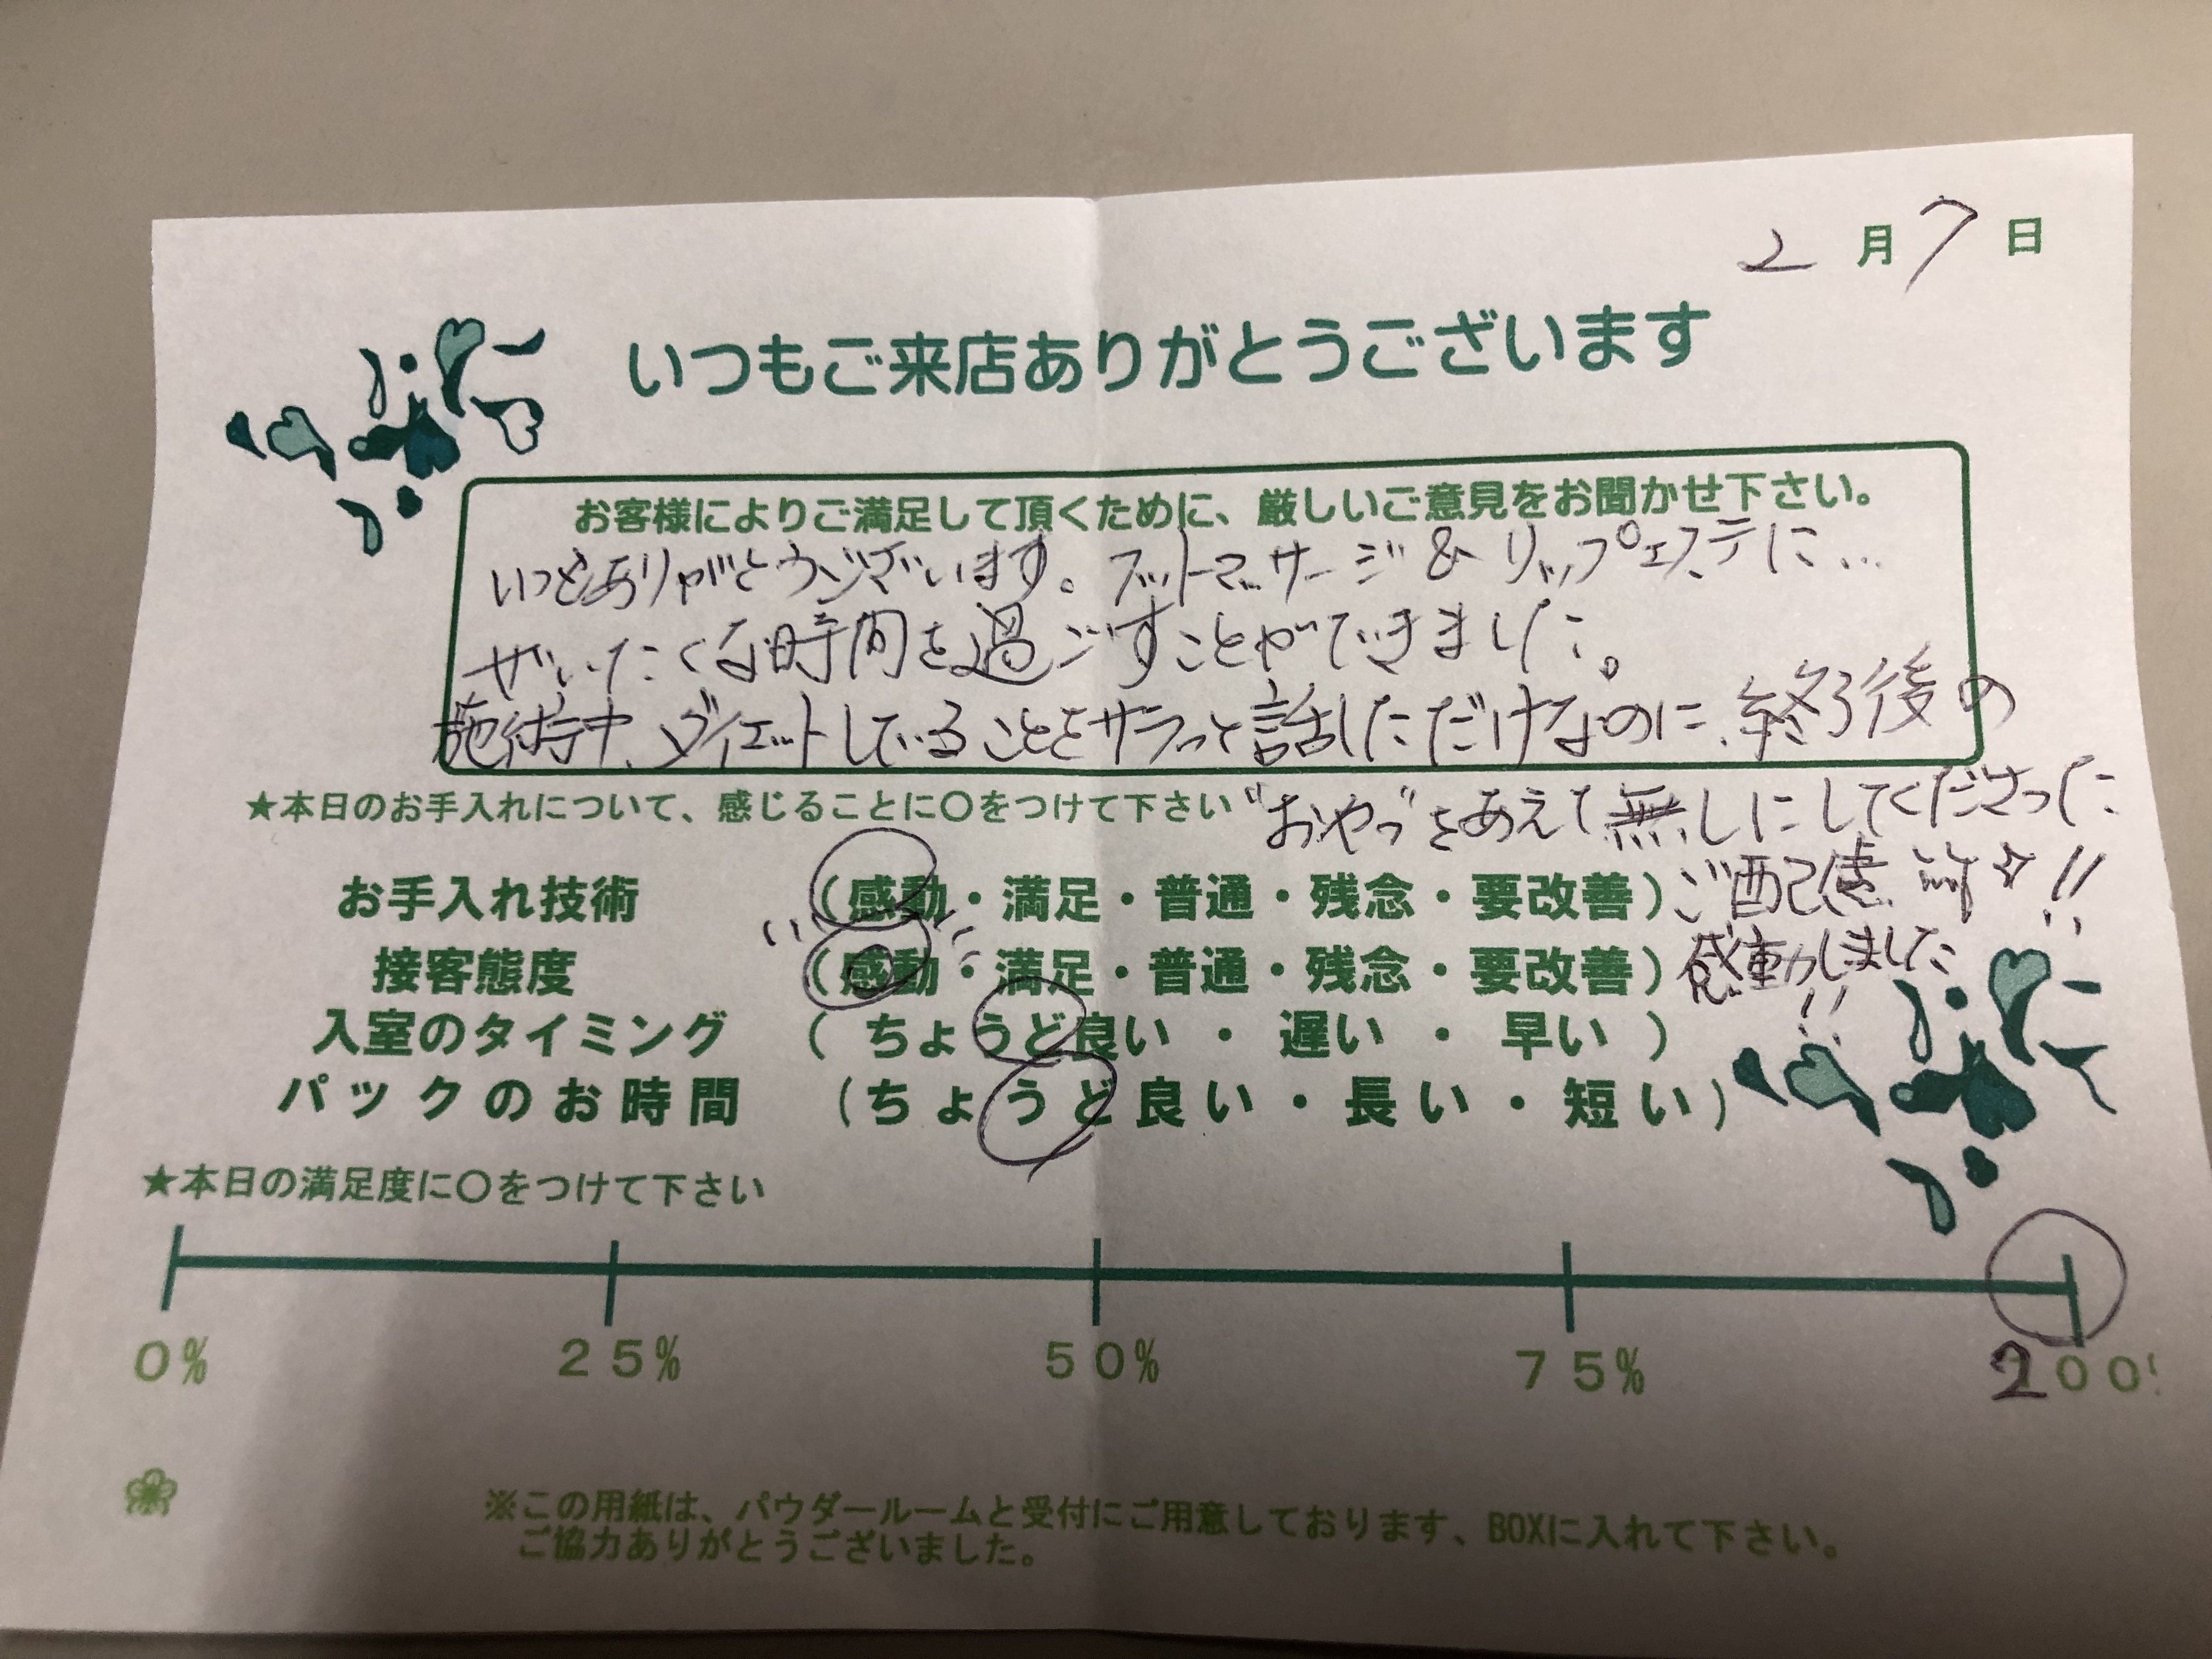 2月7日
いつもご来店ありがとうございます
お客様によりご満足して頂くために、厳しいご意見をお聞かせ下さい。
いつもありがとうございます。フットマッサージ&リップエステに…
ぜいたくな時間を過ごすことができました。
施術中、ダイエットしていることをサラっと話しただけなのに、終了後の
"おやつ"をあえて無しにしてくださった
ご配慮 !!
感動しました!!
★本日のお手入れについて、感じることに〇をつけて下さい
お手入れ技術 (感動・満足・普通・残念・要改善)
接客態度 (感動・満足・普通・残念・要改善)
入室のタイミング ( ちょうど良い ・ 遅い ・ 早い )
パックのお時間 (ちょうど良い・長い・短い)
★本日の満足度に〇をつけて下さい
0% 25% 50% 75% 200%
※この用紙は、パウダールームと受付にご用意しております、BOXに入れて下さい。
ご協力ありがとうございました。